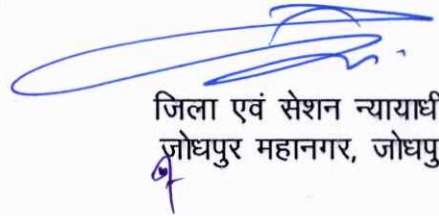 जिला एवं सेशन न्यायाधी
जोधपुर महानगर, जोधपु